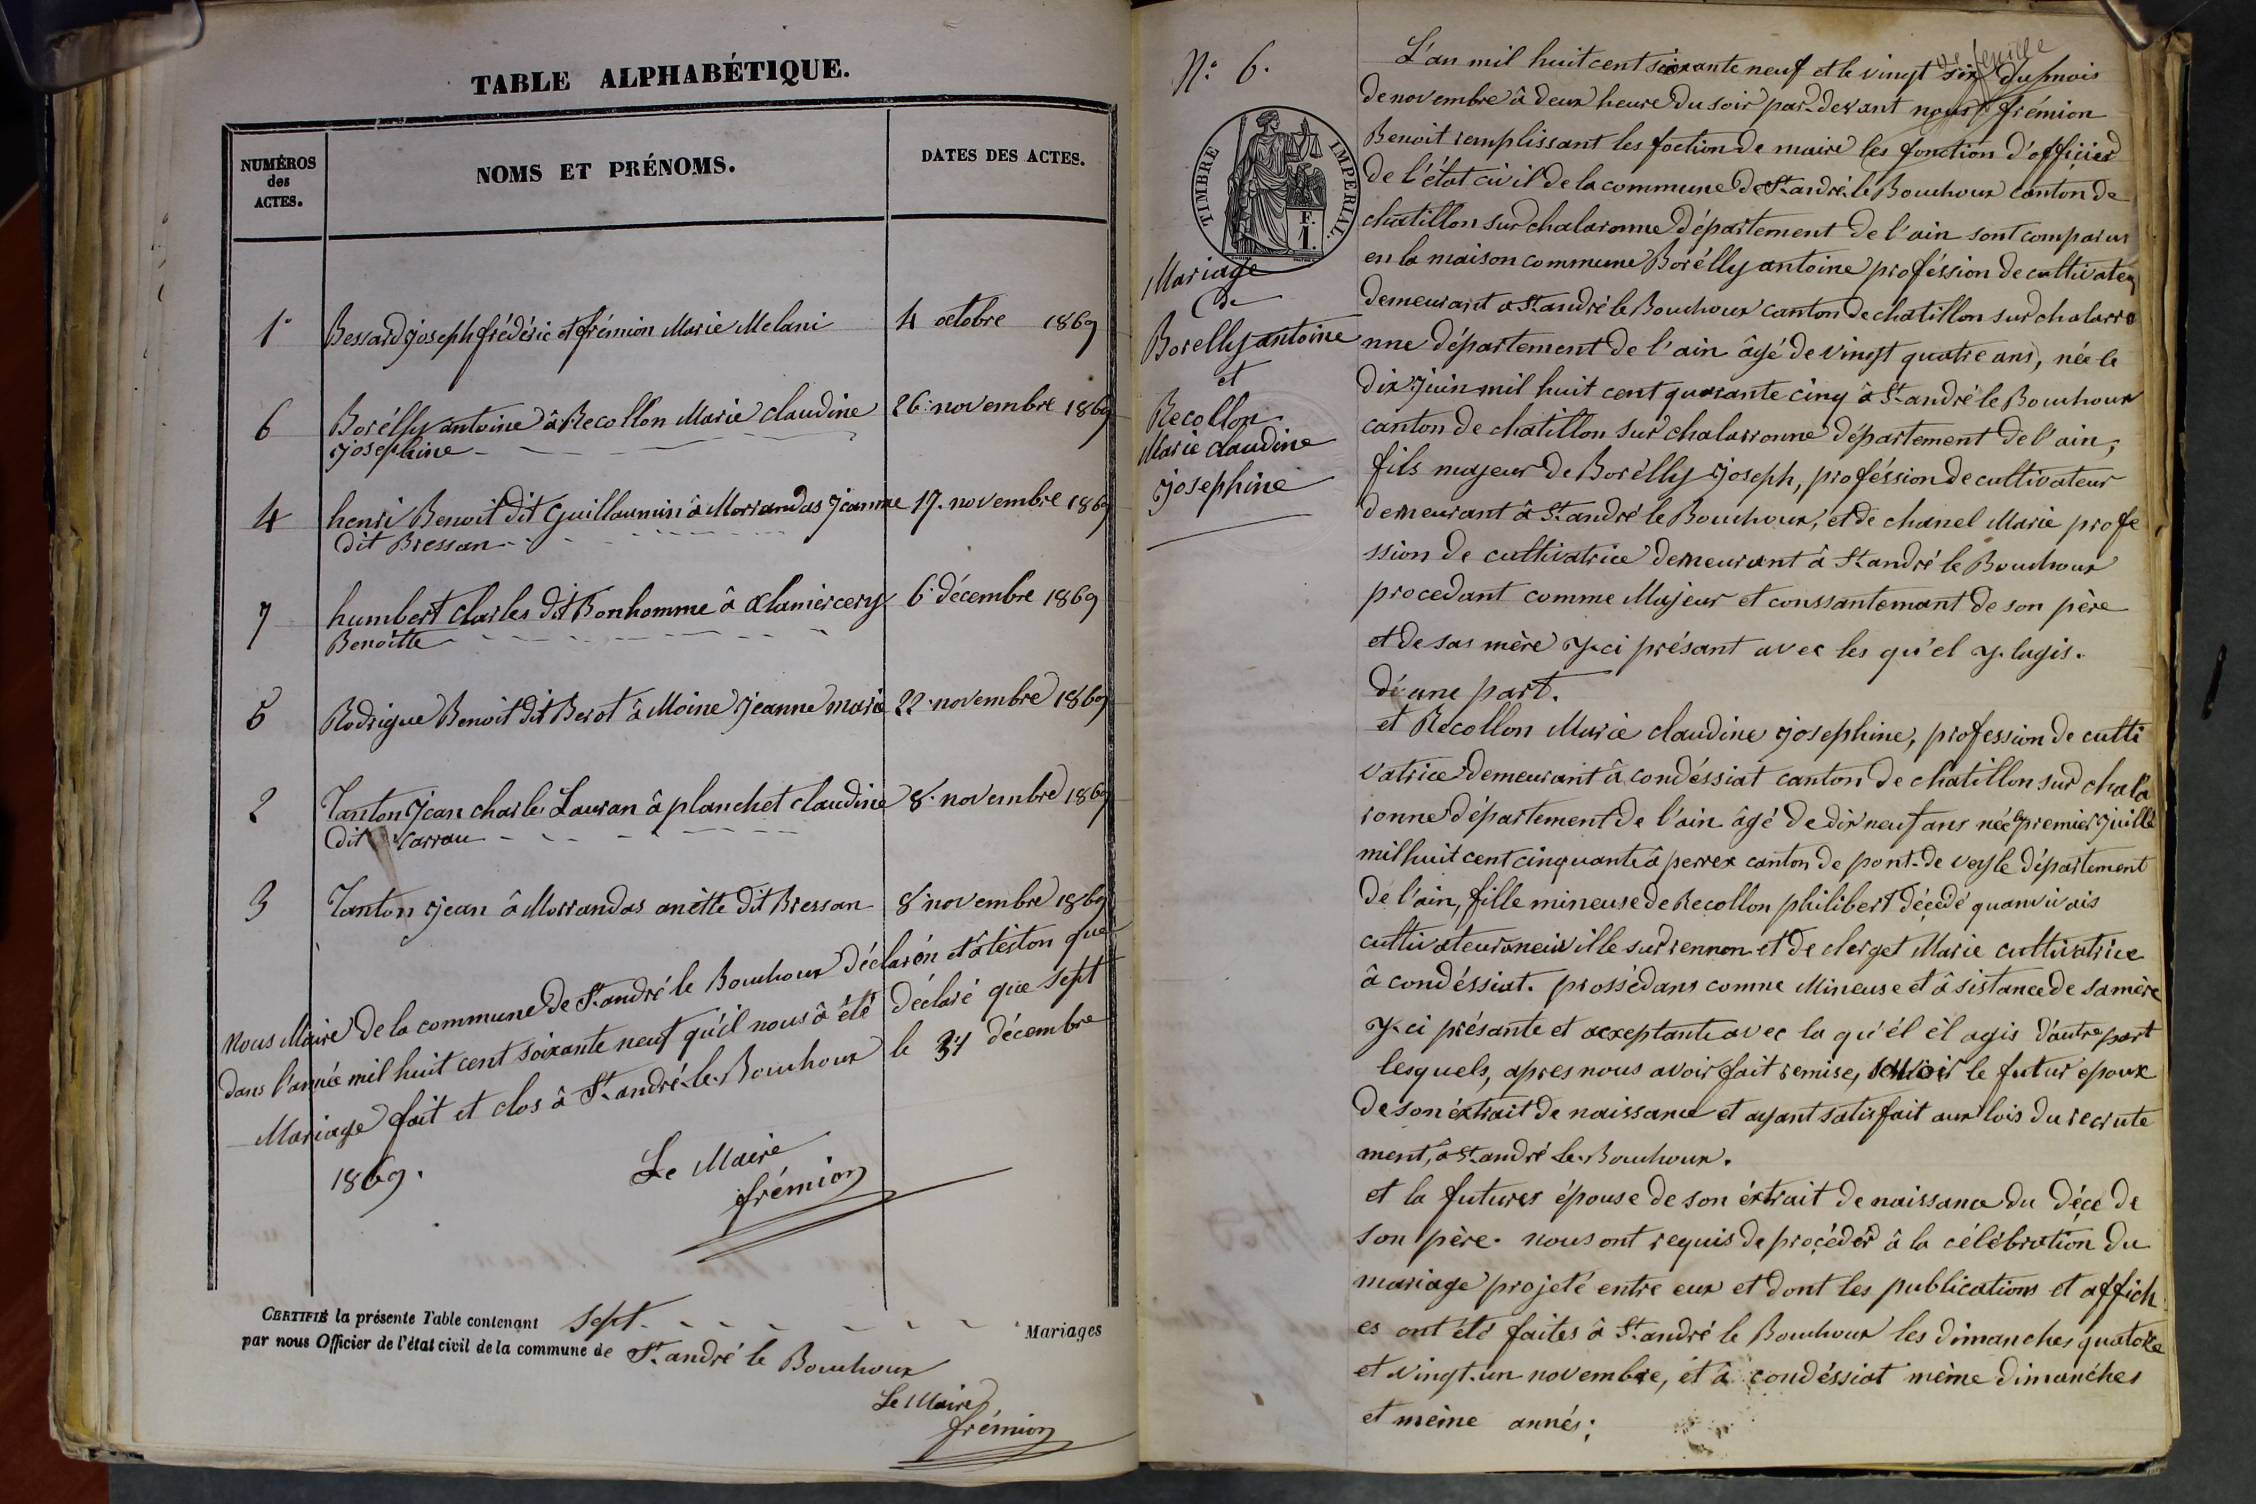 TABLE ALPHABÉTIQUE.
NUMÉROS
des
ACTES.
NOMS ET PRÉNOMS.
DATES DES ACTES.
1° Bessard joseph frédéric et frémion Marie Melani 4 octobre 1869
6 Borélly antoine â Recollon Marie claudine 26. novembre 1869
josephine
4 henri Benoit dit Guillaumin â Morrandas jeanne 17. novembre 1869
dit Bressan
7 humbert Charles dit Bonhomme â Alamercery 6. décembre 1869
Benoitte
5 Rodrigue Benoit dit Berot â Moine jeanne marie 22. novembre 1869
2 Tanton jean charles Lauran â planchet claudine 8. novembre 1869
dit Carrau
3 Tanton jean â Morrandas anette dit Bressan 8 novembre 1869
Nous Maire de la commune de St. andré le Bouchoux déclarén et âteston que
dans l'année mil huit cent soixante neuf qu'il nous â été déclaré que sept
Mariage fait et clos â St. andré-le-Bouchoux le 31 décembre
1869.
Le Maire
frémion
CERTIFIÉ la présente Table contenant sept Mariages
par nous Officier de l'état civil de la commune de St. andré le Bouchoux
Le Maire
frémion
N.° 6.
TIMBRE IMPERIAL.
F.
1.
Mariage
de
Borelly antoine
et
Recollon
Marie claudine
josephine
feuille
L'an mil huit cent soixante neuf et le vingt six du mois
de novembre â deux heure du soir par-devant nous frémion
Benoit remplissant les foction de maire les fonction d'officier
de l'état civil de la commune de St. andré-le Bouchoux canton de
chatillon sur chalaronne département de l'ain sont comparus
en la maison commune Borélly antoine proféssion de cultivateu
demeurant a St. andré le Bouchoux canton de chatillon sur chalarro
nne département de l'ain âgé de vingt quatre ans, née le
dix juin mil huit cent quarante cinq â St. andré le Bouchoux
canton de chatillon sur chalarronne département de l'ain,
fils majeur de Borélly joseph, proféssion de cultivateur
demeurant â St. andré le Bouchoux, et de chanel Marie profe
ssion de cultivatrice demeurant â St. andré le Bouchoux
procedant comme Majeur et conssantemant de son père
et de sas mère y-ci présant avec les qu'el y-lagis.
d'une part.
et Recollon Marie claudine josephine, profession de culti
vatrice demeurant â condéssiat canton de chatillon sur chala
ronne département de l'ain âgé de dix neuf ans née le premier juille
mil huit cent cinquante â perrex canton de pont-de veyle département
de l'ain, fille mineuse de Recollon philibert décédé quanvivais
cultivateur a neuville sur rennon et de clerget Marie cultivatrice
â condéssiat. prossédans comne Mineuse et â sistance de sa mère
y-ci présante et acxeptante avec la qu'él él agis d'autre part
lesquels, apres nous avoir fait remise, savoir le futur époux
de son éxtrait de naissance et ayant satisfait aux lois du recrute
ment, â St. andré le-Bouchoux.
et la futures épouse de son éxtrait de naissance du déce de
son père. nous ont requis de procéder â la célébration du
mariage projeté entre eux et dont les publications et affich
es ont été faites â St. andré le Bouchoux les dimanches quatorze
et vingt-un novembre, et â condéssiat mème dimanches
et mème annés;